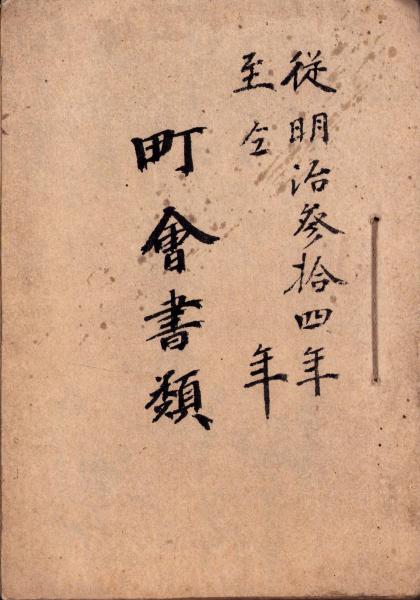 從明治参拾四年
至仝　　　年
町會書類